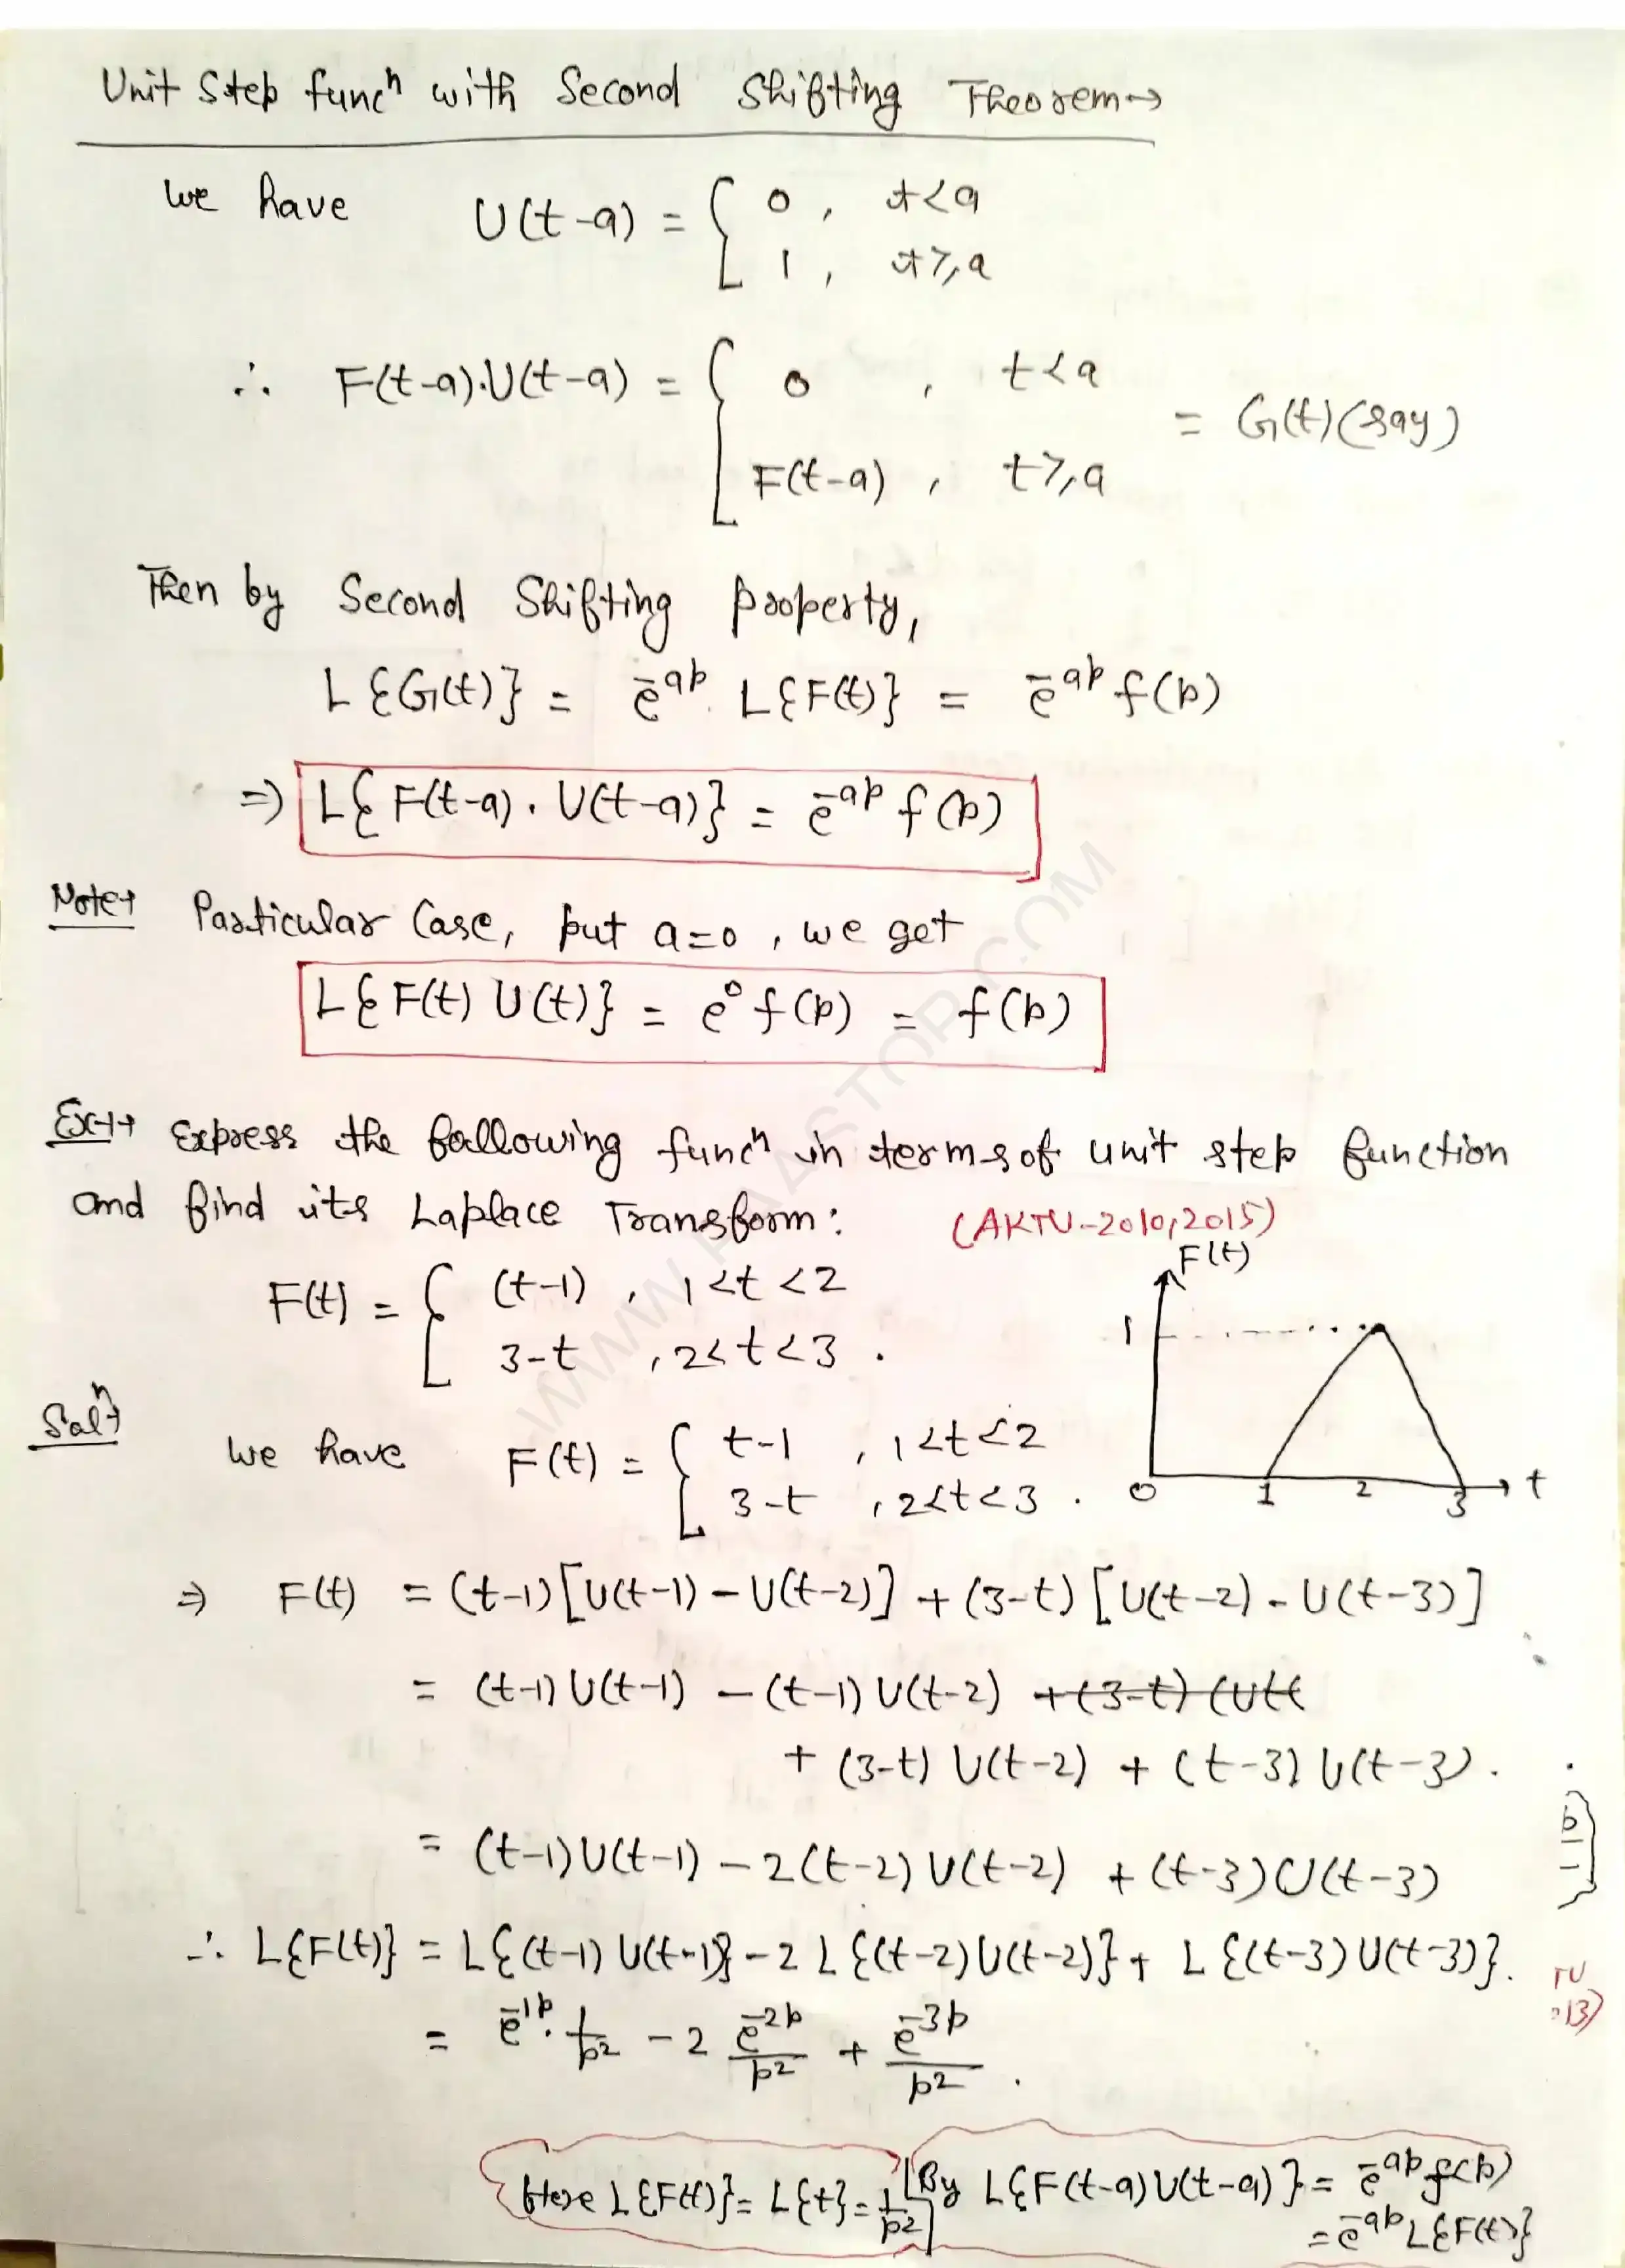 Unit Step funcⁿ with Second Shifting Theorem→
We have U(t-a) = { 0, t<a
1, t≥a
∴ F(t-a).U(t-a) = { 0, t<a
F(t-a), t≥a = G(t) (say)
Then by Second Shifting property,
L{G(t)} = e^-ap. L{F(t)} = e^-ap f(p)
⇒ L{F(t-a). U(t-a)} = e^-ap f(p)
Note→ Particular Case, put a=0, we get
L{F(t) U(t)} = e^0 f(p) = f(p)
Ex-1→ Express the following funcⁿ in terms of unit step function
and find its Laplace Transform: (AKTU-2010,2015)
F(t) = { (t-1), 1<t<2
3-t, 2<t<3.
F(t)
1
0 1 2 3 t
Solⁿ→ We have F(t) = { t-1, 1<t<2
3-t, 2<t<3.
⇒ F(t) = (t-1)[U(t-1) - U(t-2)] + (3-t) [U(t-2) - U(t-3)]
= (t-1) U(t-1) - (t-1) U(t-2) +(3-t) (U(t
+ (3-t) U(t-2) + (t-3) U(t-3).
= (t-1)U(t-1) - 2(t-2) U(t-2) + (t-3)U(t-3)
∴ L{F(t)} = L{(t-1) U(t-1)} - 2 L{(t-2)U(t-2)} + L{(t-3)U(t-3)}.
= e^-1p. 1/p² - 2 e^-2p/p² + e^-3p/p².
Here L{F(t)} = L{t} = 1/p² [By L{F(t-a)U(t-a)} = e^-ap f(p)
= e^-ap L{F(t)}
TU
13)